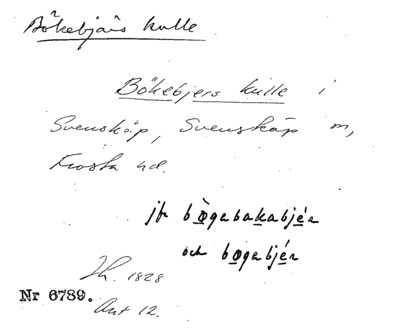 Bökebjärs kulle
Bökebjers kulle i
Svensköp, Svensköp sn,
Frosta hd.
jfr bògabakabjér
och bogabjér
1828
Nr 6789.
Akt 12.